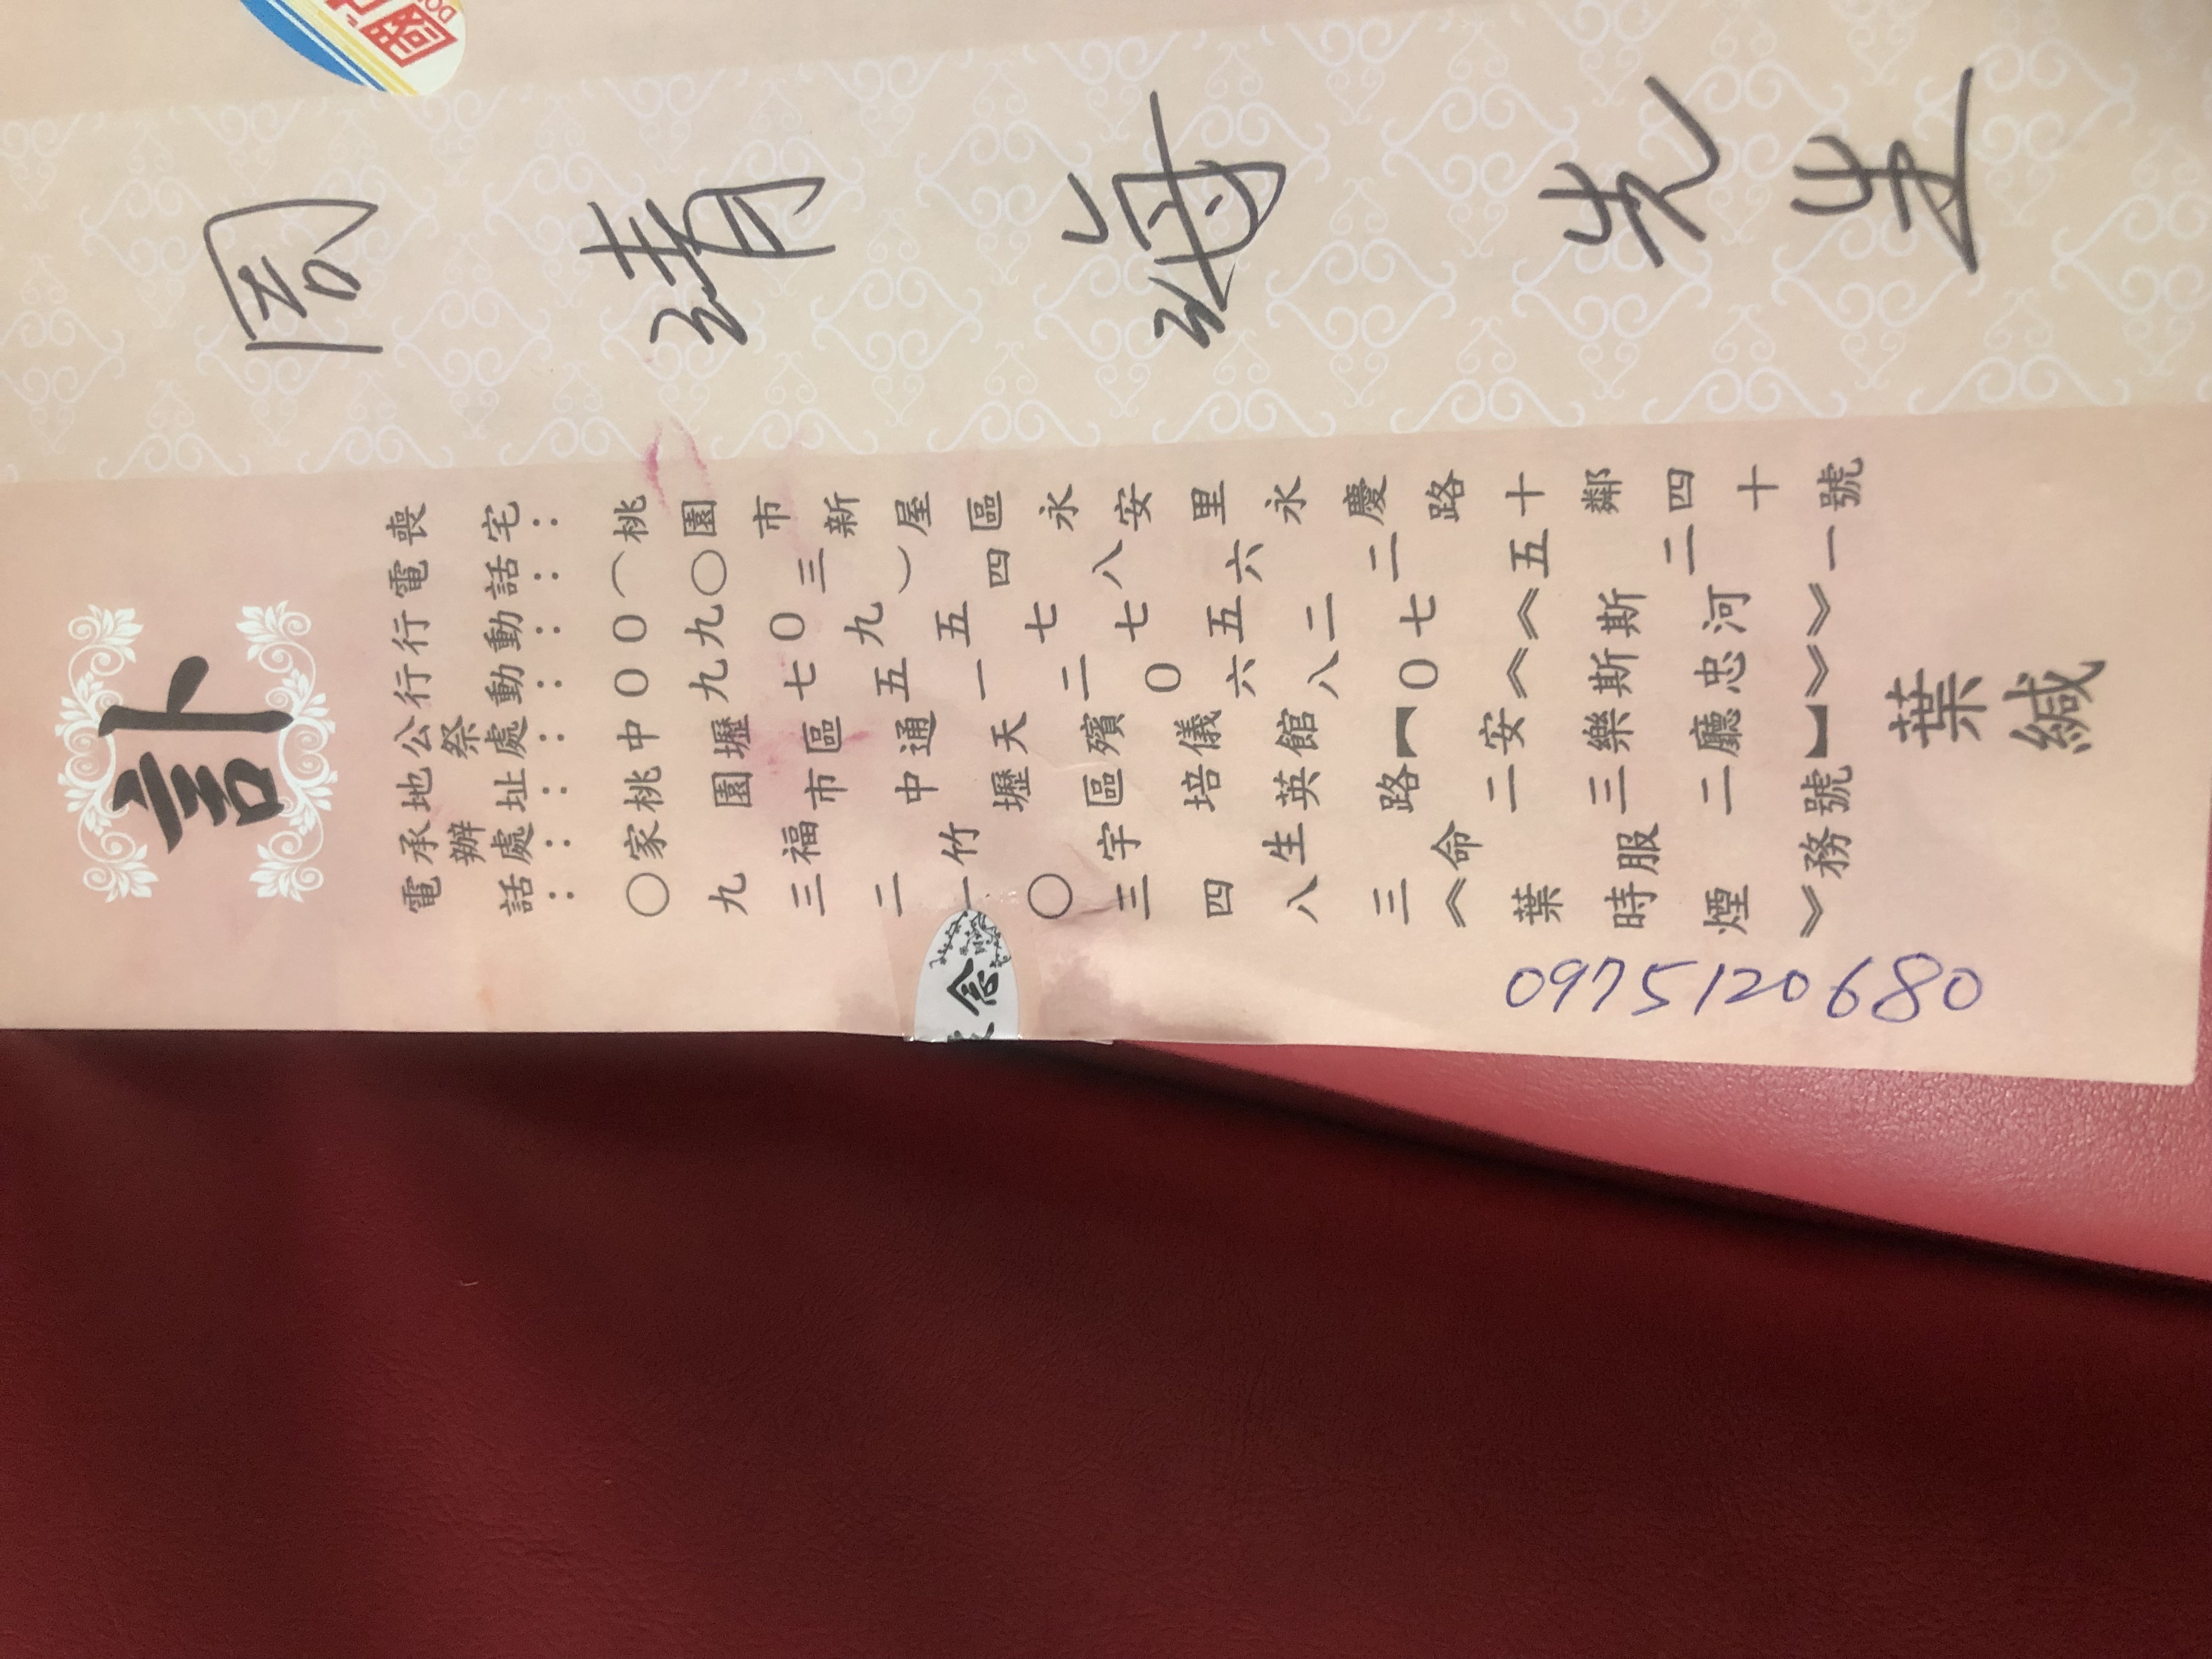 周清海先生
訃
喪宅：桃園市新屋區永安里永慶路十鄰四十一號
電話：（〇三）四八六二五二一
行動：0九0九五七七五二七《斯河》
行動：0九七五一二0六八0《斯忠》
公祭處：中壢區通天殯儀館【安樂廳】
地址：桃園市中壢區培英路二三二號
承辦處：家福竹宇生命服務
電話：〇九三二一〇三四八三《葉時煙》
葉緘
0975120680
念